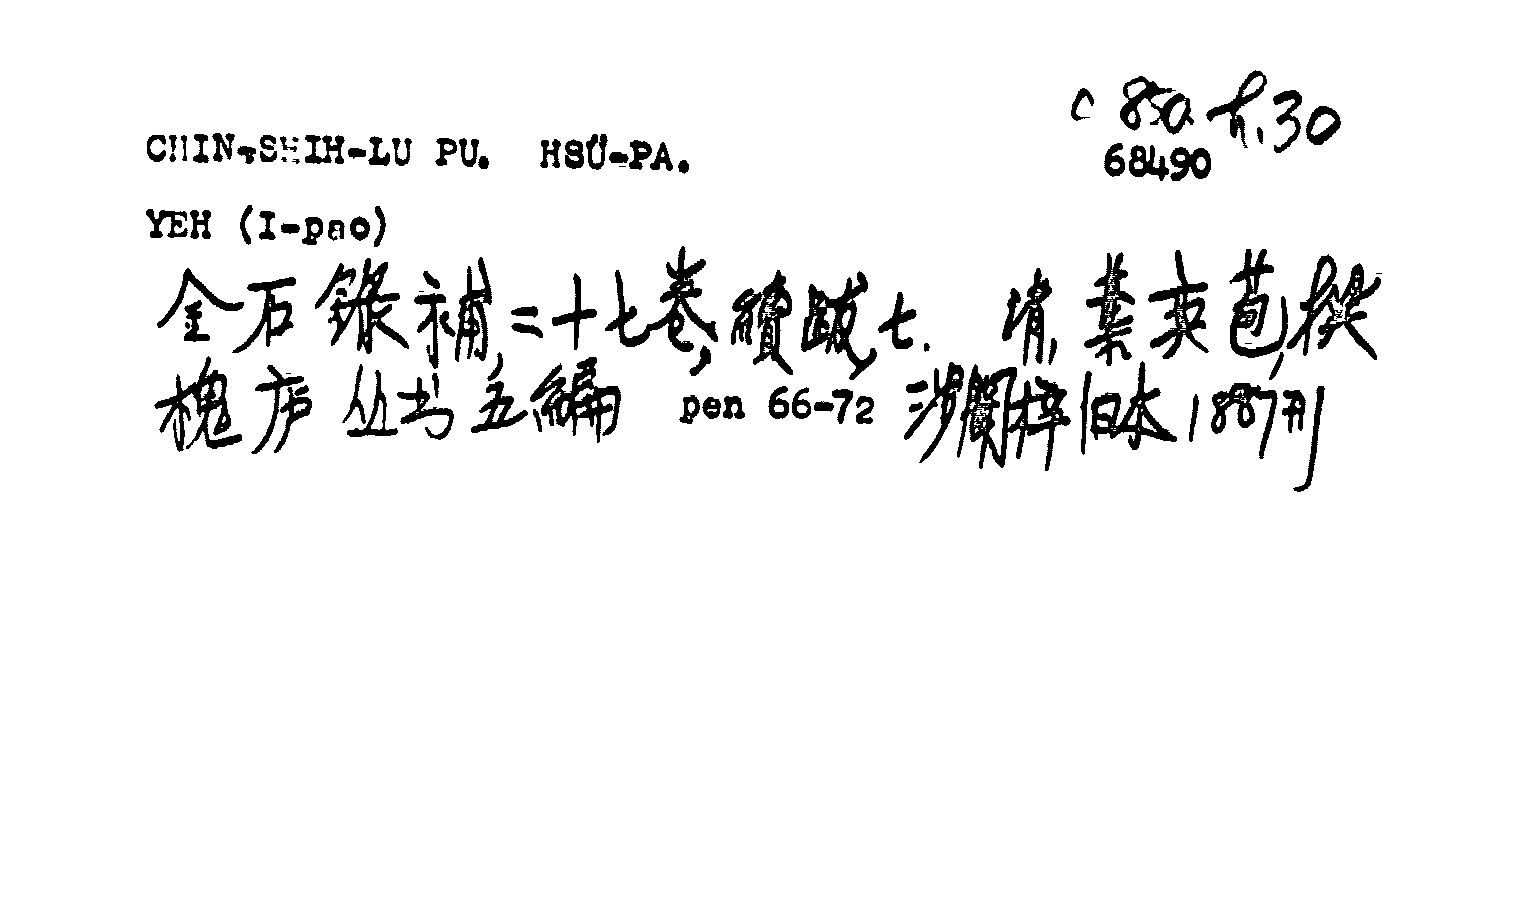 C 850 h.30
CHIN-SHIH-LU PU. HSÜ-PA. 68490
YEH (I-pao)
金石錄補二十七卷,續跋七. 清,葉奕苞,撰
槐庐丛书五編 pen 66-72 涉闻梓旧本 1887刊